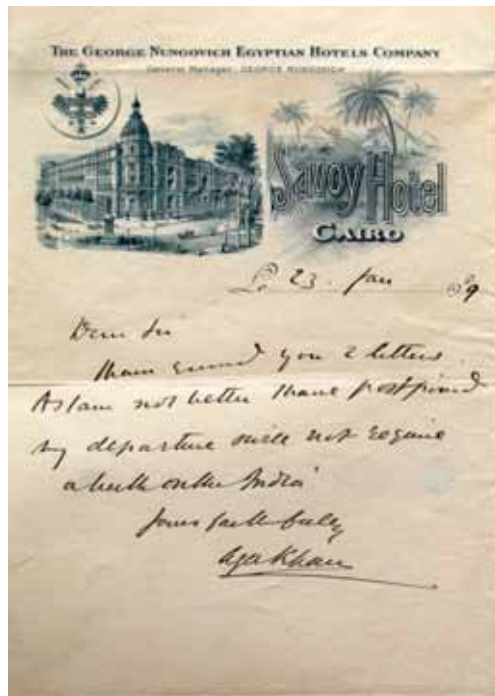 THE GEORGE NUNGOVICH EGYPTIAN HOTELS COMPANY
General Manager: GEORGE NUNGOVICH
Savoy Hotel
CAIRO
Le 23. Jan 1909
Dear Sir
I have received you 2 letters.
As I am not better I have postponed
my departure will not require
a berth on the India
Yours faithfully
Aga Khan